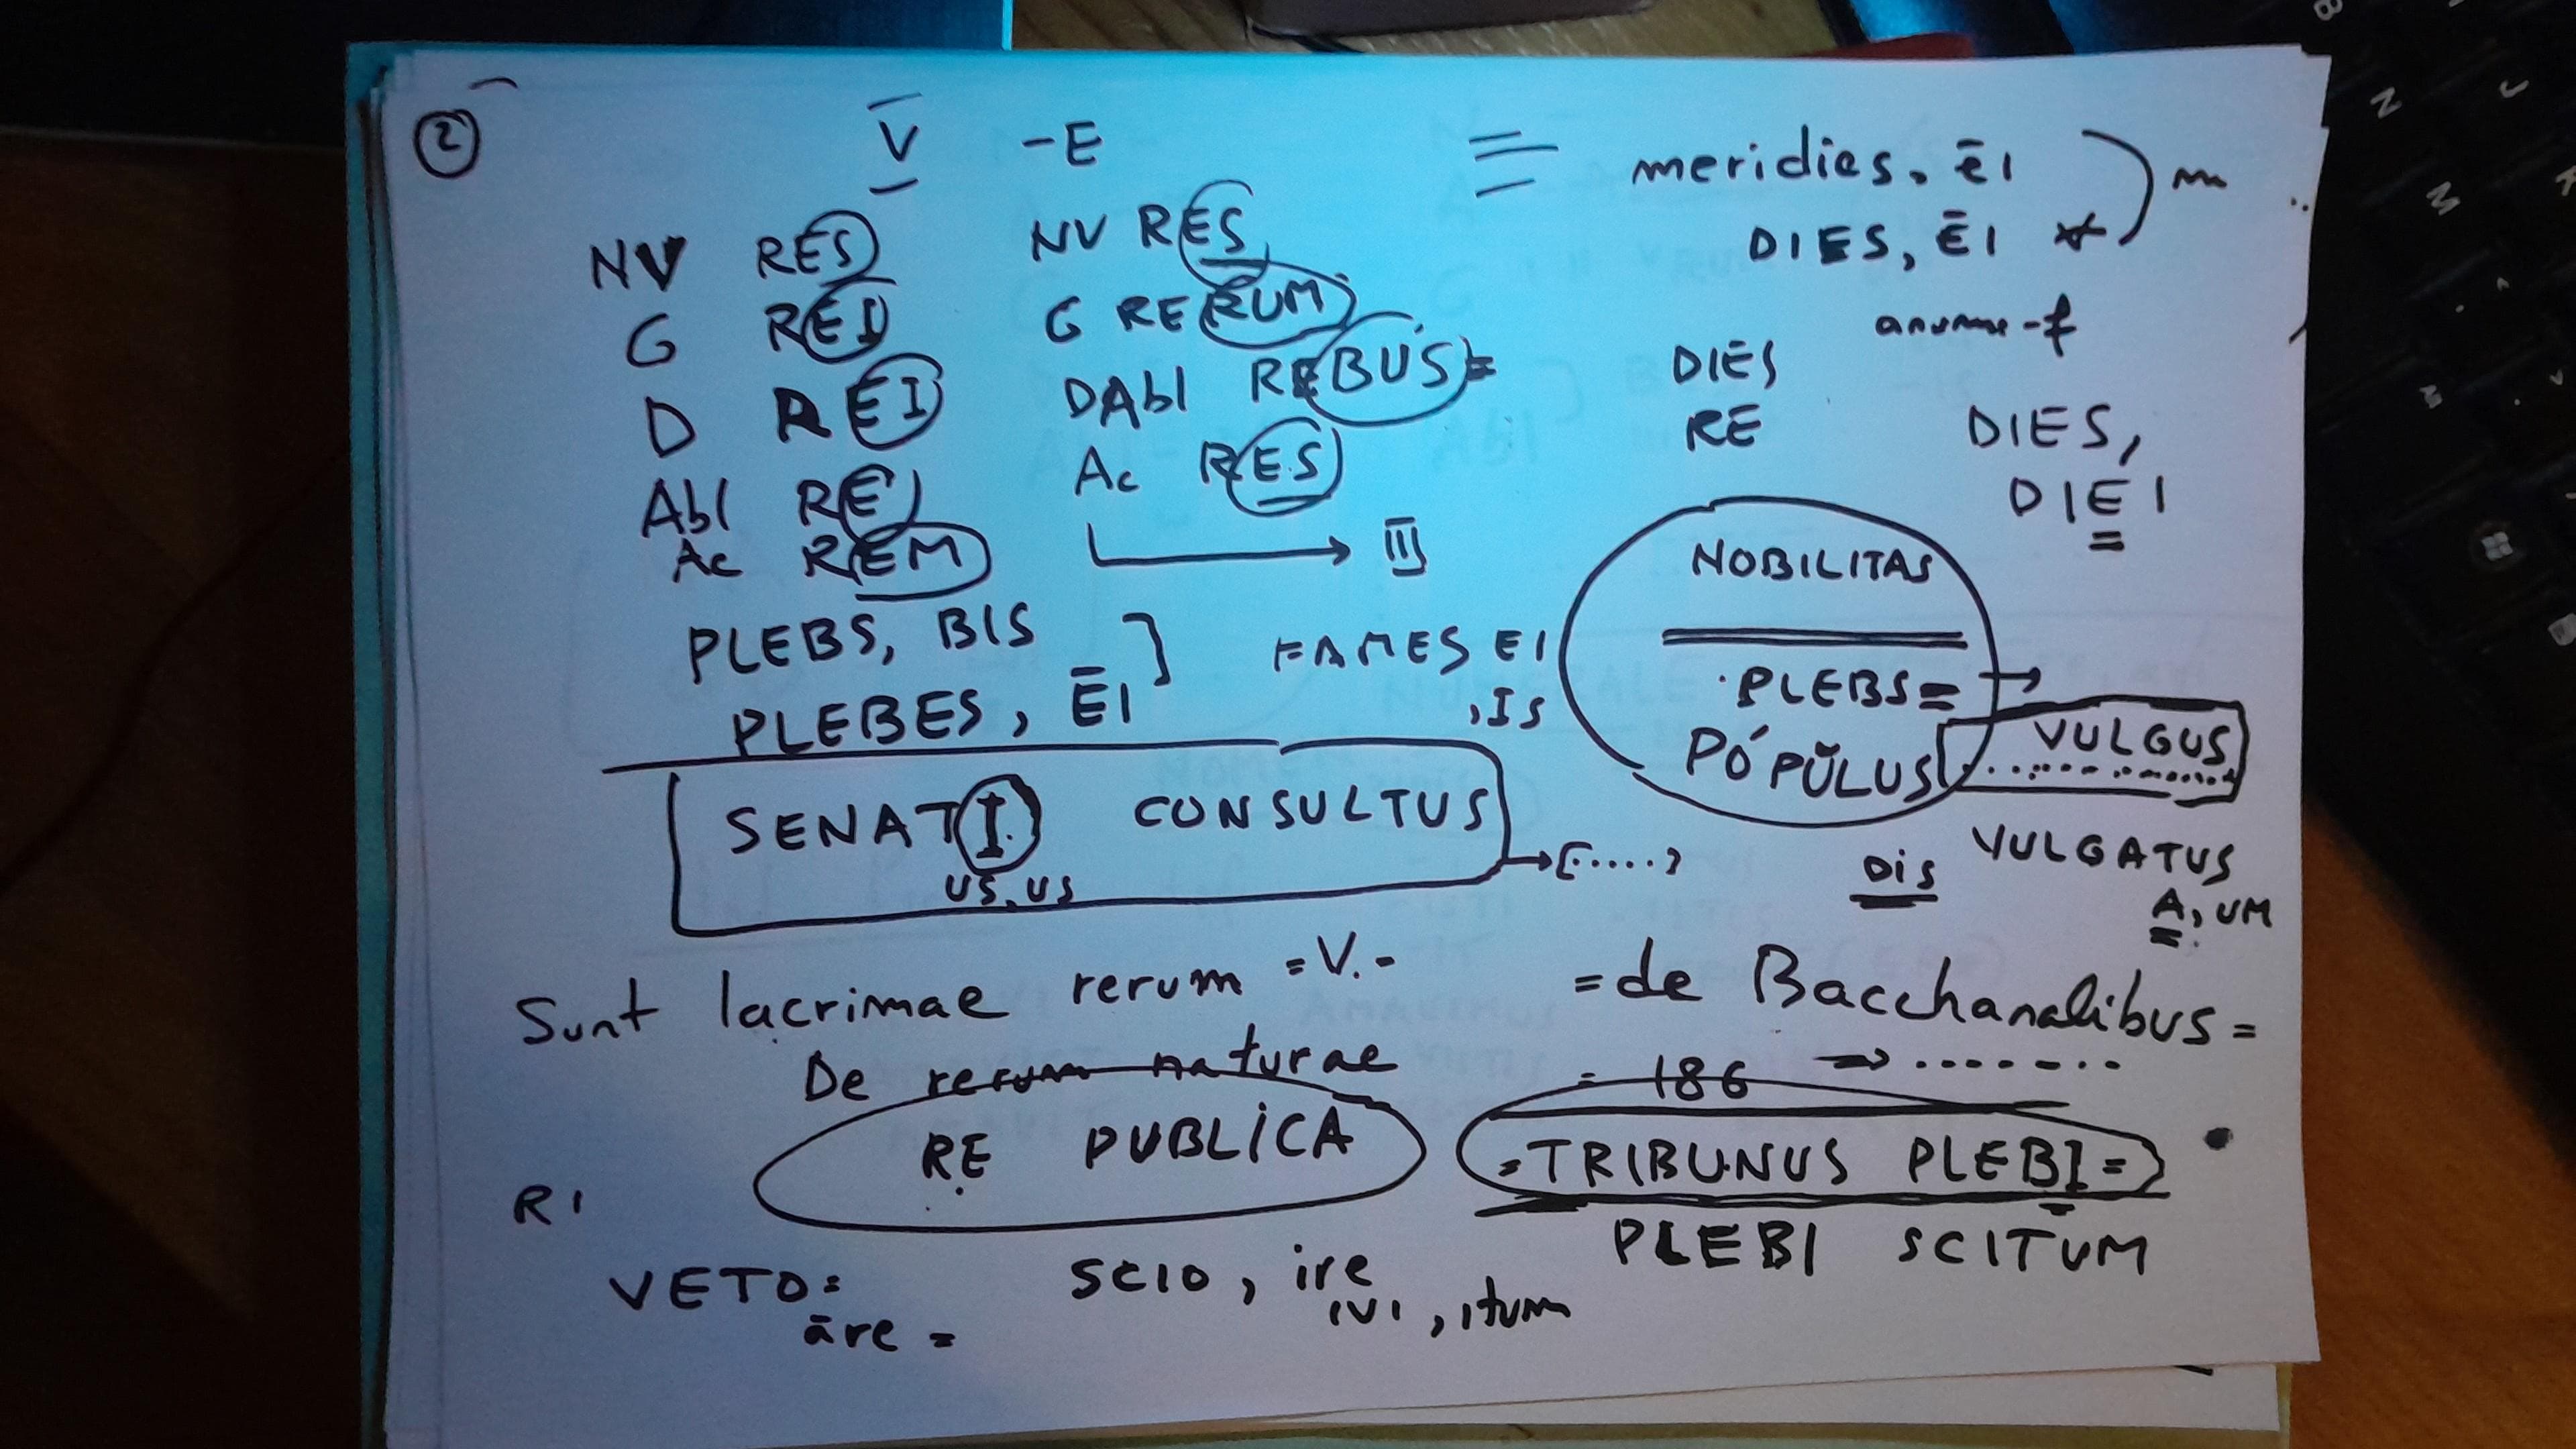 2
V -E
NV RES
G REI
D REI
Abl RE
Ac REM
NV RES
G RERUM
DAbl REBUS=
Ac RES
III
PLEBS, BIS
PLEBES, ĒI
FAMES EI
, IS
meridies, ēi
DIES, ĒI
m
-f
DIES
RE
DIES,
DIEI
NOBILITAS
PLEBS=
PÓPŬLUS
VULGUS
VULGATUS
A, UM
DIS
SENATI CONSULTUS
US, US
[.....]
Sunt lacrimae rerum =V.-
De rerum naturae
RE PUBLICA
RI
VETO=
āre =
SCIO, ire
IVI, itum
=de Bacchanalibus=
= 186 → .......
=TRIBUNUS PLEBI=
PLEBI SCITUM